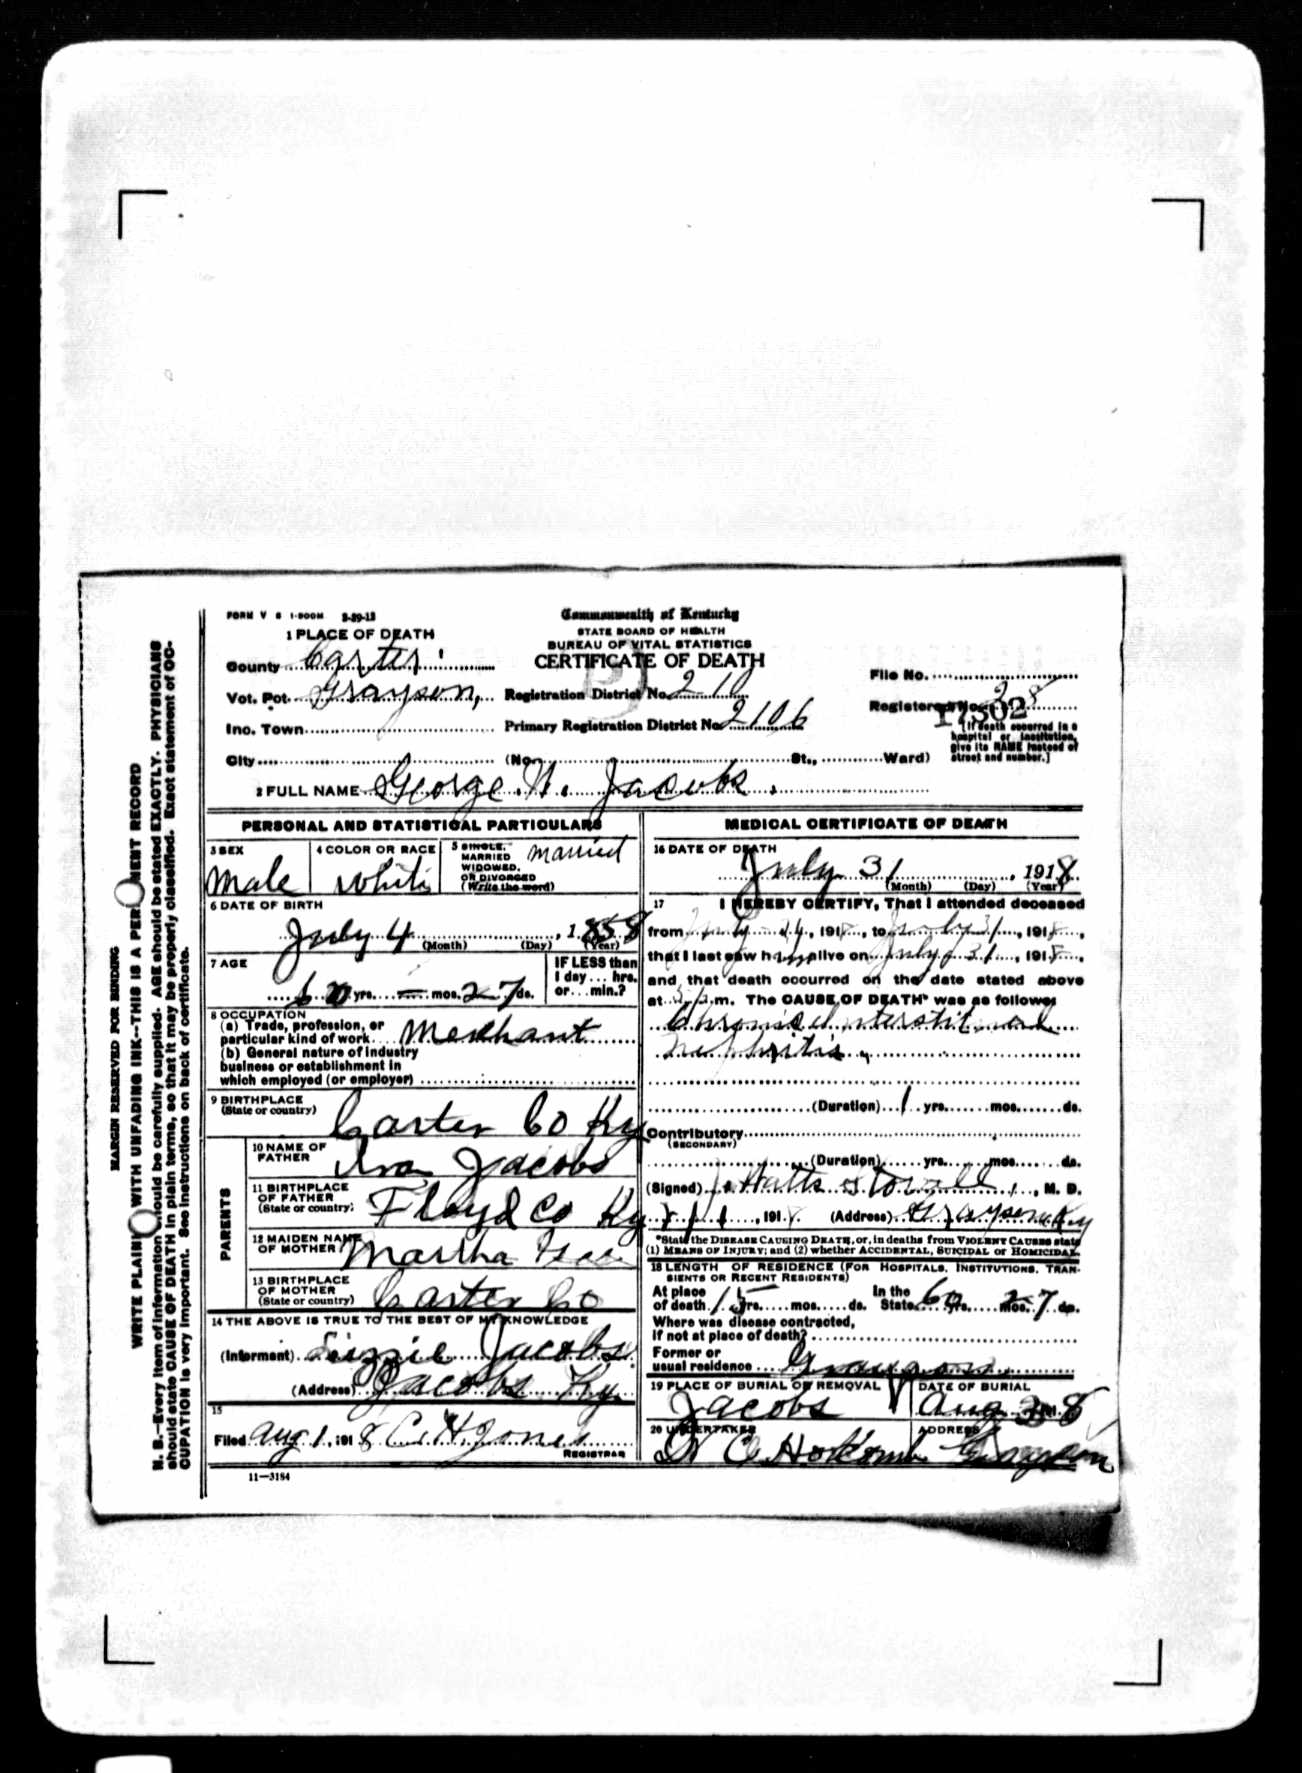 FORM V S 1-500M 5-29-13
Commonwealth of Kentucky
STATE BOARD OF HEALTH
BUREAU OF VITAL STATISTICS
CERTIFICATE OF DEATH
1 PLACE OF DEATH
County Carter
Vot. Pct. Grayson,
Registration District No. 210
File No.
Inc. Town
Primary Registration District No. 2106
Registered No. 28
17502
[If death occurred in a
hospital or institution,
give its NAME instead of
street and number.]
City (No. St., Ward)
2 FULL NAME George W. Jacobs
PERSONAL AND STATISTICAL PARTICULARS
3 SEX
Male
4 COLOR OR RACE
White
5 SINGLE,
MARRIED
WIDOWED,
OR DIVORCED
(Write the word)
married
6 DATE OF BIRTH
July 4, 1858
(Month) (Day) (Year)
7 AGE
60 yrs. — mos. 27 ds.
IF LESS than
1 day... hrs.
or... min.?
8 OCCUPATION
(a) Trade, profession, or
particular kind of work Merchant
(b) General nature of industry
business or establishment in
which employed (or employer)
9 BIRTHPLACE
(State or country)
Carter Co Ky
PARENTS
10 NAME OF
FATHER
Ira Jacobs
11 BIRTHPLACE
OF FATHER
(State or country)
Floyd Co Ky
12 MAIDEN NAME
OF MOTHER
Martha
13 BIRTHPLACE
OF MOTHER
(State or country)
Carter Co
14 THE ABOVE IS TRUE TO THE BEST OF MY KNOWLEDGE
(Informant) Lizzie Jacobs
(Address) Jacobs Ky.
15
Filed Aug 1, 1918 C. H. Jones
REGISTRAR
11—3184
MEDICAL CERTIFICATE OF DEATH
16 DATE OF DEATH
July 31, 1918
(Month) (Day) (Year)
17 I HEREBY CERTIFY, That I attended deceased
from July 24, 1918, to July 31, 1918,
that I last saw him alive on July 31, 1918,
and that death occurred on the date stated above
at m. The CAUSE OF DEATH* was as follows:
Chronic Interstitial
nephritis
(Duration) 1 yrs. mos. ds.
Contributory
(SECONDARY)
(Duration) yrs. mos. ds.
(Signed) J. Watts Stovall, M. D.
8/1, 1918 (Address) Grayson Ky
*State the DISEASE CAUSING DEATH, or, in deaths from VIOLENT CAUSES state
(1) MEANS OF INJURY; and (2) whether ACCIDENTAL, SUICIDAL or HOMICIDAL.
18 LENGTH OF RESIDENCE (FOR HOSPITALS, INSTITUTIONS, TRAN-
SIENTS OR RECENT RESIDENTS)
At place
of death 15 yrs. mos. ds.
In the
State 60 yrs. mos. 27 ds.
Where was disease contracted,
If not at place of death?
Former or
usual residence Grayson
19 PLACE OF BURIAL OR REMOVAL
Jacobs
DATE OF BURIAL
Aug 3 1918
20 UNDERTAKER
W C Holcomb
ADDRESS
Grayson
MARGIN RESERVED FOR BINDING
WRITE PLAINLY WITH UNFADING INK--THIS IS A PERMANENT RECORD
N. B.—Every item of information should be carefully supplied. AGE should be stated EXACTLY. PHYSICIANS
should state CAUSE OF DEATH in plain terms, so that it may be properly classified. Exact statement of OC-
CUPATION is very important. See instructions on back of certificate.